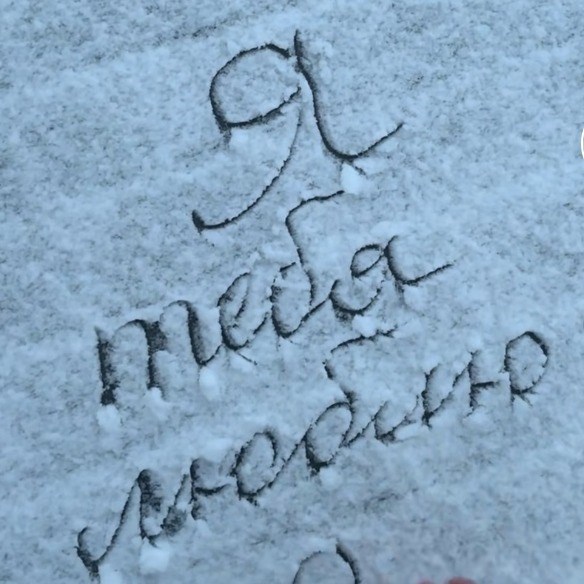 Я
тебя
люблю